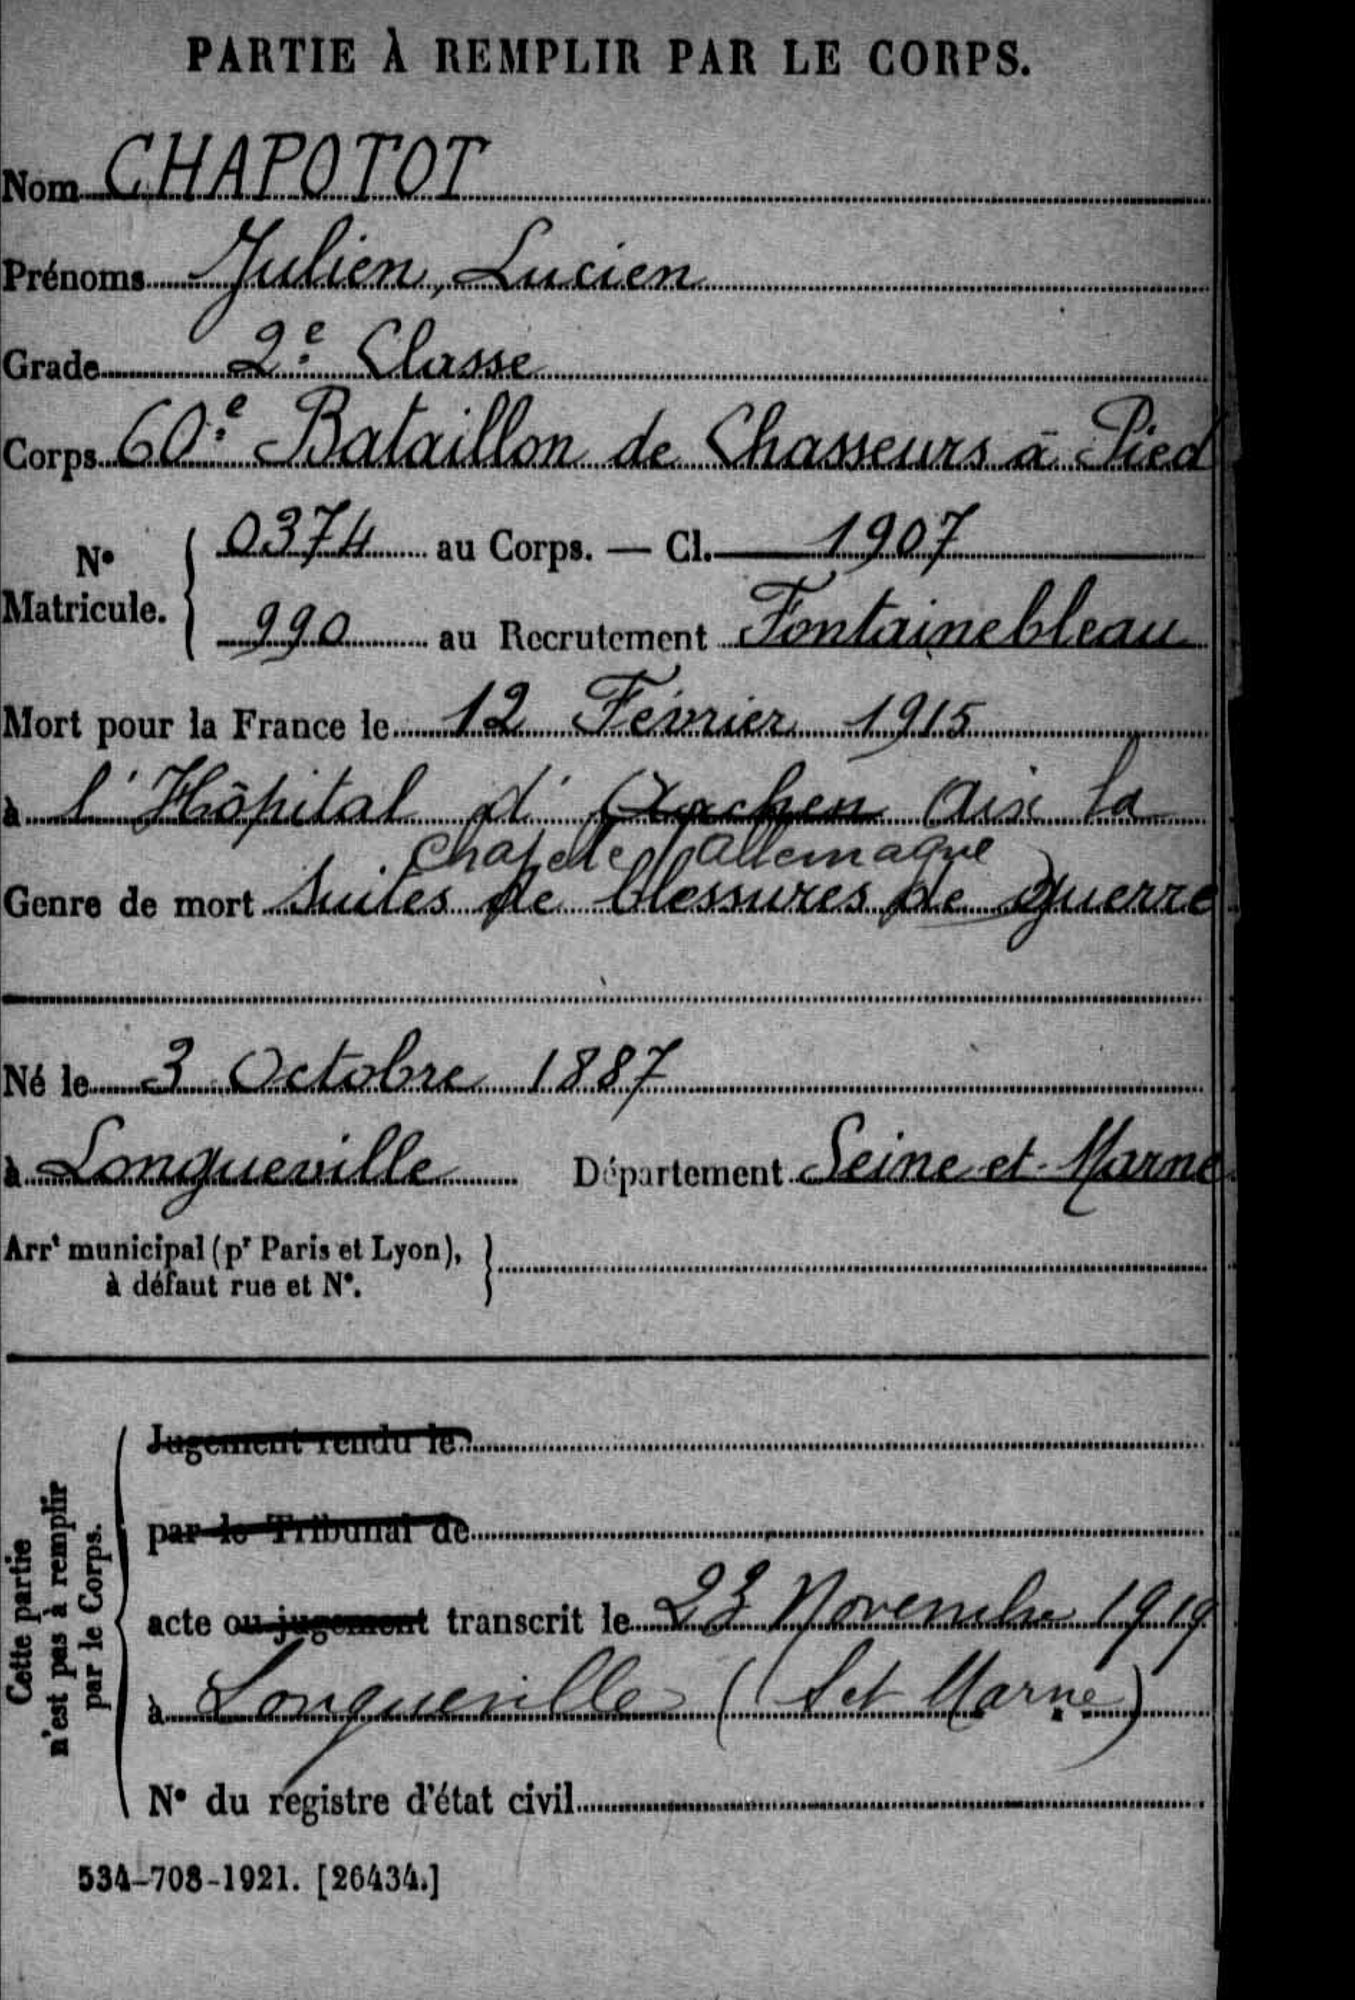 PARTIE À REMPLIR PAR LE CORPS.
Nom CHAPOTOT
Prénoms Julien, Lucien
Grade 2e Classe
Corps 60e Bataillon de Chasseurs à Pied
No Matricule. { 0374 au Corps. — Cl. 1907
990 au Recrutement Fontainebleau
Mort pour la France le 12 Février 1915
à l'Hôpital d' Aachen Aix la
Chapelle Allemagne
Genre de mort Suites de blessures de guerre
Né le 3 Octobre 1887
à Longueville Département Seine et Marne
Arrt municipal (pr Paris et Lyon),
à défaut rue et No.
Cette partie
n'est pas à remplir
par le Corps.
Jugement rendu le
par le Tribunal de
acte ou jugement transcrit le 23 Novembre 1919
à Longueville (S et Marne)
No du registre d'état civil
534-708-1921. [26434.]